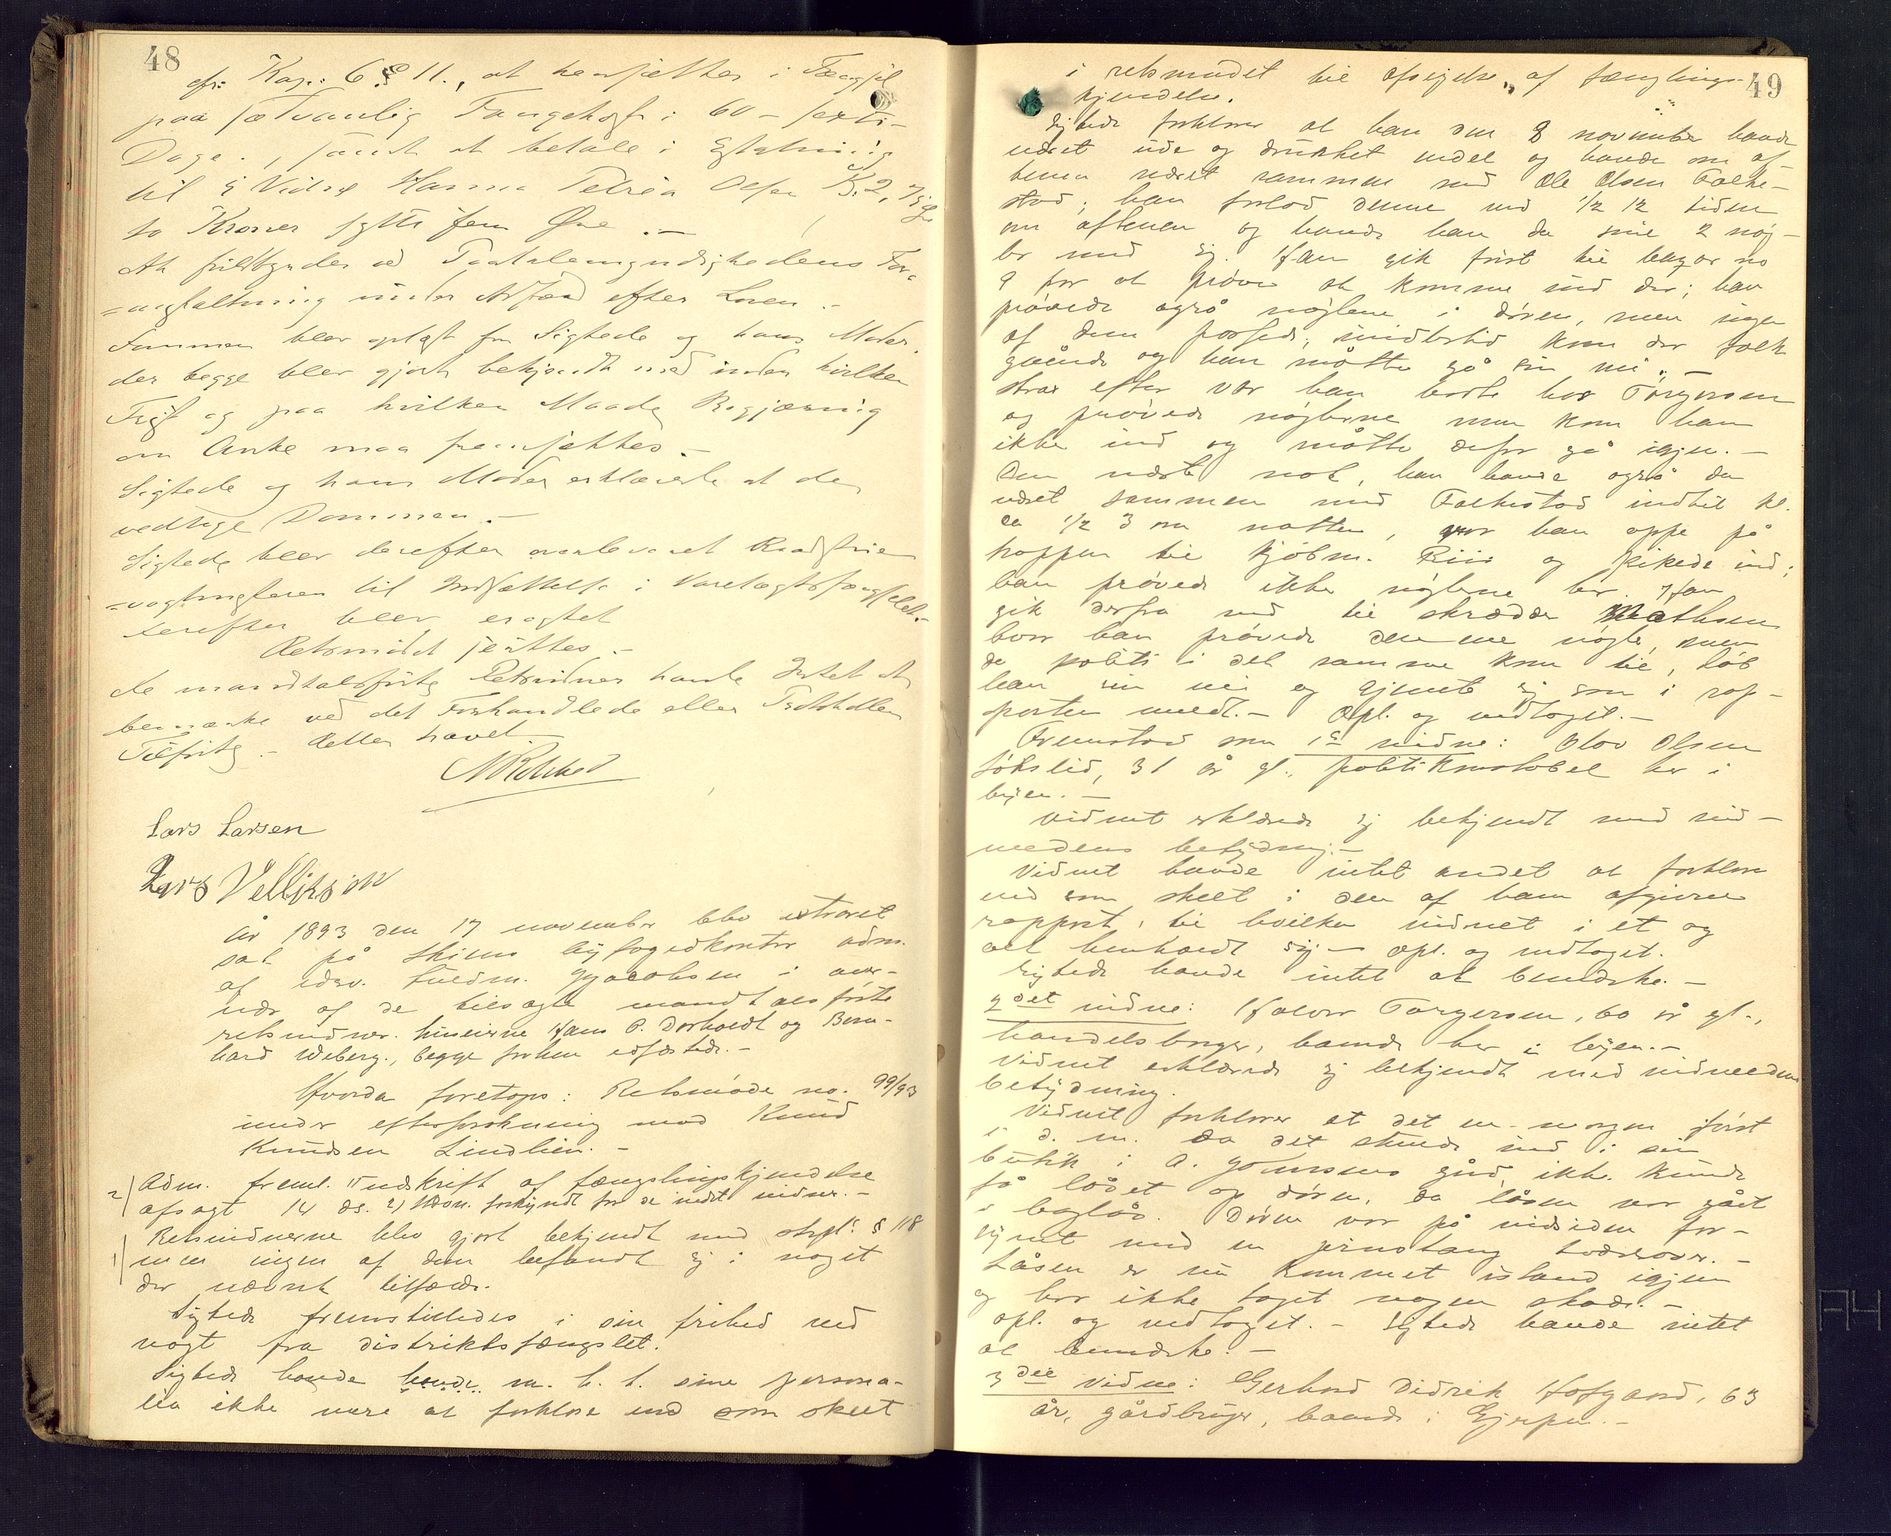 48
cfr: Kap: 6 § 11., at hensættes i Fængsel
paa sædvanlig Fangekost i 60 – sexti –
Dage., samt at betale i Erstatning
til Vidne Hanna Petrea Olsen Kr. 2,75
to Kroner sytti fem Øre. –
At fuldbyrdes ved Paatalemyndighedens For-
=anstaltning under Adfærd efter Loven. –
Dommen blev oplæst for Sigtede og hans Moder,
der begge blev gjort bekjendt med inden hvilken
Frist og paa hvilken Maade Begjæring
om Anke maa fremsættes. –
Sigtede og hans Moder erklærede at de
vedtoge Dommen. –
Sigtede blev derefter overleveret Raadstue
=vagtmesteren til Indsættelse i Varetægtsfængslet. –
derefter blev
Retsmødet sluttes. –
De mandtalsførte Retsvidner havde Intet at
bemærke ved det Forhandlede eller Protokollens
Tilførsel. – Retten hævet.
Lars Larsen
Lars Velliksøn
År 1893 den 17 november blev extraret
sat på Skiens byfogedkontor adm.
af edsv. fuldm. Jacobsen i over-
vær af de tilsagte mandtalsførte
retsvidner. huseierne Hans P. Dorholdt og Bern-
hard Weberg., begge forhen edfæstede. –
Hvorda foretoges: Retsmøde no. 99/93
under efterforskning mod Knud
Knudsen Lindlien. –
2) Adm. freml. 1) udskrift af fængslingskjendelse
afsagt 14 ds. 2) forkyndt for de mødte vidner. –
1) Retsvidnerne blev gjort bekjendt med strpl. § 118
men ingen af dem befandt sig i noget
der nævnt tilfælde.
Sigtede fremstilledes i sin frihed med
vagt fra distriktsfængslet.
Sigtede havde havde m. h. t. sine persona-
lia ikke mere at forklare end som skeet
49
i retsmødet til afsigelse af fængslings-
kjendelse.
Sigtede forklarer at han den 8 november havde
været ude og drukket endel og havde om af-
tenen været sammen med Ole Olsen Falke-
stad; han forlod denne ved 1/2 12 tiden
om aftenen og havde han da sine 2 nøg-
ler med sig. Han gik først til bager no
9 for at prøve at komme ind der; han
prøvede også nøglene i døren, men ingen
af dem passede, imidlertid kom der folk
gående og han måtte gå sin vei. –
Strax efter var han borte hos Torgersen
og prøvede nøglerne men kom han
ikke ind og måtte derfor gå igjen. –
Den næste nat, han havde også da
været sammen med Falkestad indtil kl.
ca 1/2 3 om natten, var han oppe på
trappen til kjøbm. Riis og kikede ind;
han prøvede ikke nøglene her. Han
gik derfra ned til skrædder Mathsen
hvor han prøvede denne nøgle, men
da politi i det samme kom til, løb
han sin vei og gjemte sig som i rap-
porten meldt. – Opl. og vedtaget. –
Fremstod som 1ste vidne: Olav Olsen
Jøkslid, 31 år gl., politikonstabel her i
byen. –
Vidnet erklærede sig bekjendt med vid-
nedens betydning. –
Vidnet havde intet andet at forklare
end som skeet i den af ham afgivne
rapport, til hvilken vidnet i et og
alt henholdt sig – opl. og vedtaget.
Sigtede havde intet at bemærke. –
2det vidne: Halvor Torgersen, 60 år gl.,
handelsborger, boende her i byen. –
Vidnet erklærede sig bekjendt med vidneedens
betydning.
Vidnet forklarer at det en morgen først
i d. m. da det skulde ind i sin
butik i A. Johnsens gård, ikke kunde
få lådet op døren, da låsen var gået
i baglås. Døren var på indsiden for-
synet med en jernstang tværsover. –
Låsen er nu kommet istand igjen
og har ikke taget nogen skade. –
opl. og vedtaget. – Sigtede havde intet
at bemærke. –
3die vidne: Gerhard Didrik Hofgaard, 63
år, gårdbruger, boende i Gjerpen. –